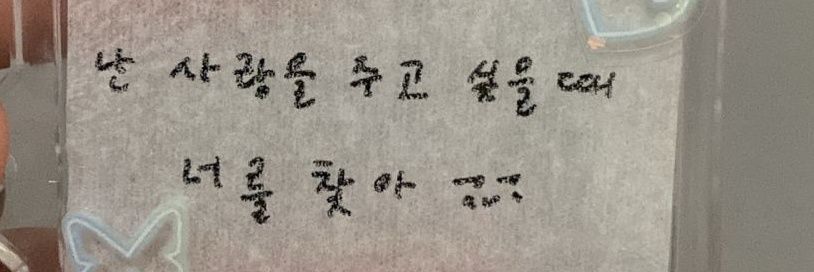 난 사랑을 주고 싶을 때
너를 찾아